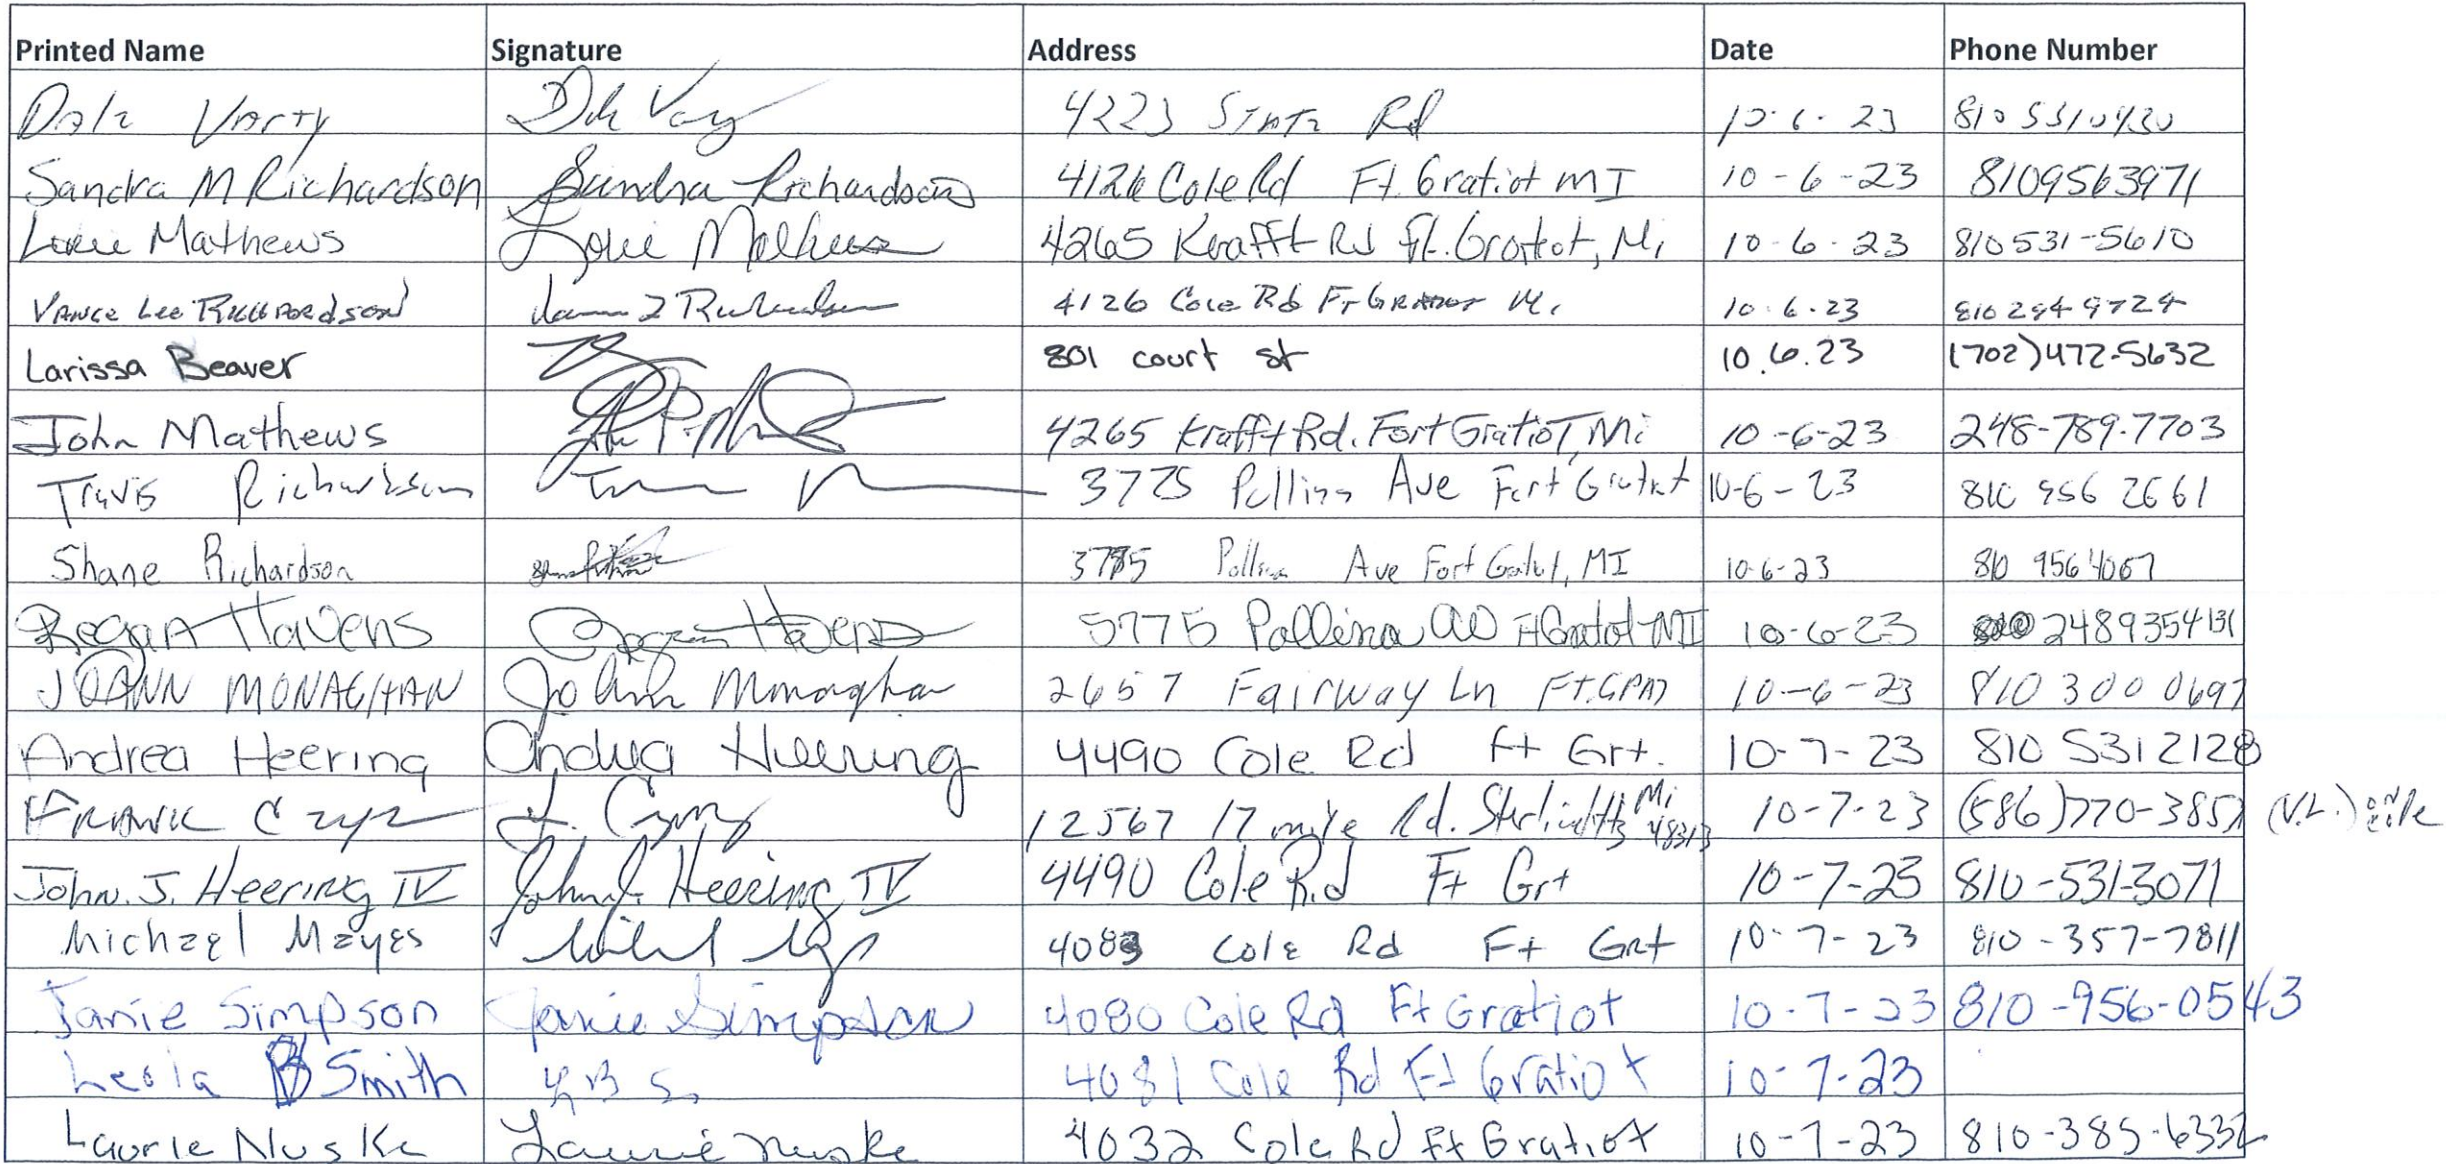 Printed Name Signature Address Date Phone Number
Dale Varty Dale Varty 4223 State Rd 10·6·23 810 5310430
Sandra M Richardson Sandra Richardson 4126 Cole Rd Ft. Gratiot MI 10-6-23 8109563971
Lorie Mathews Lorie Mathews 4265 Krafft Rd Ft. Gratiot, Mi 10-6-23 810 531-5610
Vance Lee Richardson 4126 Cole Rd Ft Gratiot Mi 10.6.23 810 294 9724
Larissa Beaver 801 court st 10.6.23 (702)472-5632
John Mathews 4265 Krafft Rd. Fort Gratiot, Mi 10-6-23 248-789-7703
Travis Richardson 3775 Pollina Ave Fort Gratiot 10-6-23 810 956 2661
Shane Richardson 3775 Pollina Ave Fort Gratiot, MI 10-6-23 810 956 4067
Regan Havens Regan Havens 3775 Pollina Ft Gratiot MI 10-6-23 2489354131
JOANN MONAGHAN JoAnn Monaghan 2657 Fairway Ln 10-6-23 810 300 0697
Andrea Heering Andrea Heering 4490 Cole Rd Ft Grt. 10-7-23 810 531 2128
FRANK Czyz F. Czyz 12567 17 mile Rd. Sterling Hts Mi 48313 10-7-23 (586)770-3851 (V.L.) on cole
John. J. Heering IV John J. Heering IV 4490 Cole Rd Ft Grt 10-7-23 810-531-3071
Michael Mayes 4083 Cole Rd Ft Grt 10-7-23 810-357-7811
Janie Simpson Janie Simpson 4080 Cole Rd Ft Gratiot 10-7-23 810-956-0543
Leola B Smith L B S 4081 Cole Rd Ft Gratiot 10-7-23
Laurie Nuske Laurie Nuske 4032 Cole Rd Ft Gratiot 10-7-23 810-385-6332